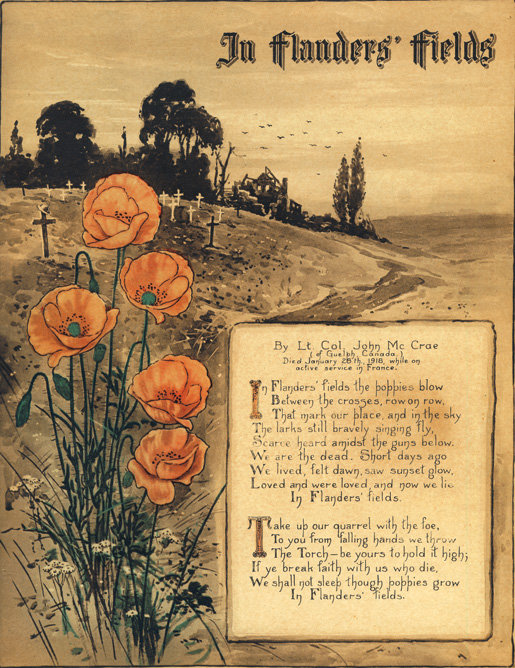 In Flanders' Fields
By Lt. Col. John Mc Crae
(of Guelph, Canada.)
Died January 28'th, 1918, while on
active service in France.
In Flanders' fields the poppies blow
Between the crosses, row on row,
That mark our place, and in the sky
The larks still bravely singing fly,
Scarce heard amidst the guns below.
We are the dead. Short days ago
We lived, felt dawn, saw sunset glow,
Loved and were loved, and now we lie
In Flanders' fields.
Take up our quarrel with the foe,
To you from falling hands we throw
The Torch – be yours to hold it high;
If ye break faith with us who die,
We shall not sleep though poppies grow
In Flanders' fields.